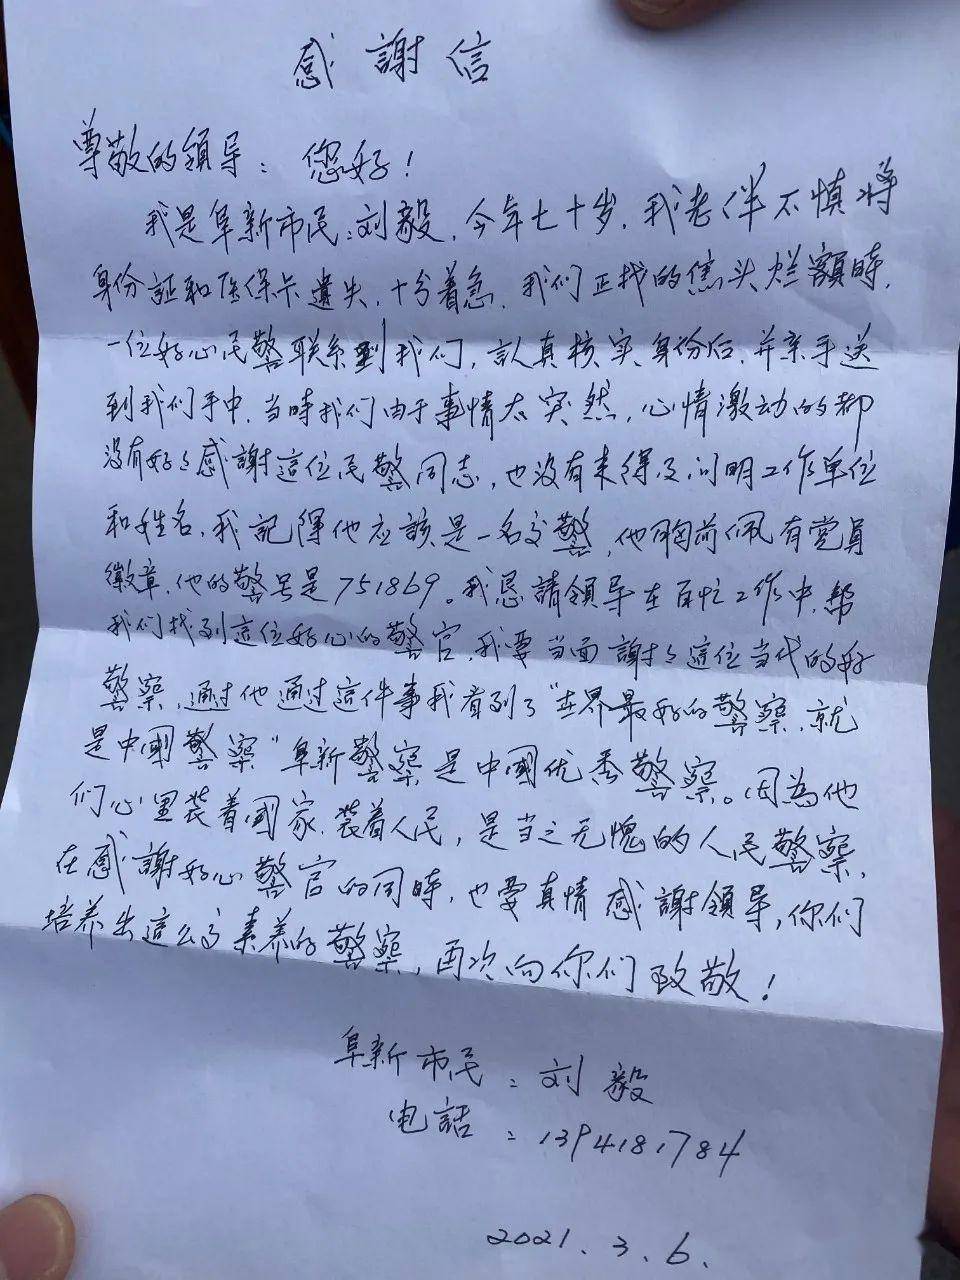 感謝信
尊敬的領导：您好！
我是阜新市民：刘毅，今年七十岁，我老伴不慎将
身份証和医保卡遺失，十分着急，我们正找的焦头烂額時，
一位好心民警联系到我们，認真核实身份后，并亲手送
到我们手中，当時我们由于事情太突然，心情激动的都
没有好好感謝這位民警同志，也没有来得及问明工作单位
和姓名，我記得他应該是一名交警，他胸前佩有党員
徽章，他的警号是751869。我恳請領导在百忙工作中，帮
我们找到這位好心的警官，我要当面謝謝這位当代的好
警察，通过他通过這件事我看到了“世界最好的警察，就
是中國警察”阜新警察是中國优秀警察。因為他
们心里装着國家，装着人民，是当之无愧的人民警察，
在感謝好心警官的同時，也要真情感謝領导，你们
培养出這么高素养的警察，再次向你们致敬！
阜新市民：刘毅
电話：1394181784
2021.3.6.